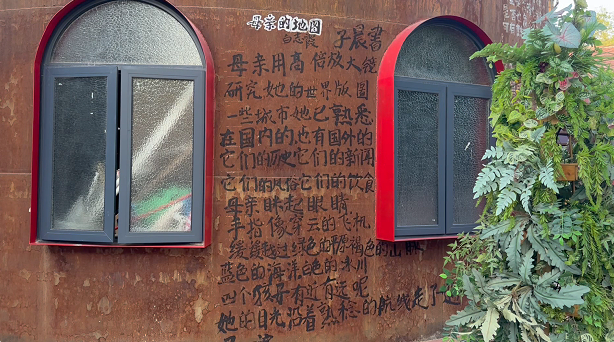 母亲的地图
子晨書
母亲用高倍放大镜
研究她的世界版图
一些城市她已熟悉
在国内的也有国外的
它们的历史它们的新闻
它们的风俗它们的饮食
母亲眯起眼睛
手指像穿云的飞机
缓缓越过绿色的平原褐色的山脉
蓝色的海洋白色的冰川
四个孩子有近有远呢
她的目光沿着熟稔的航线走了